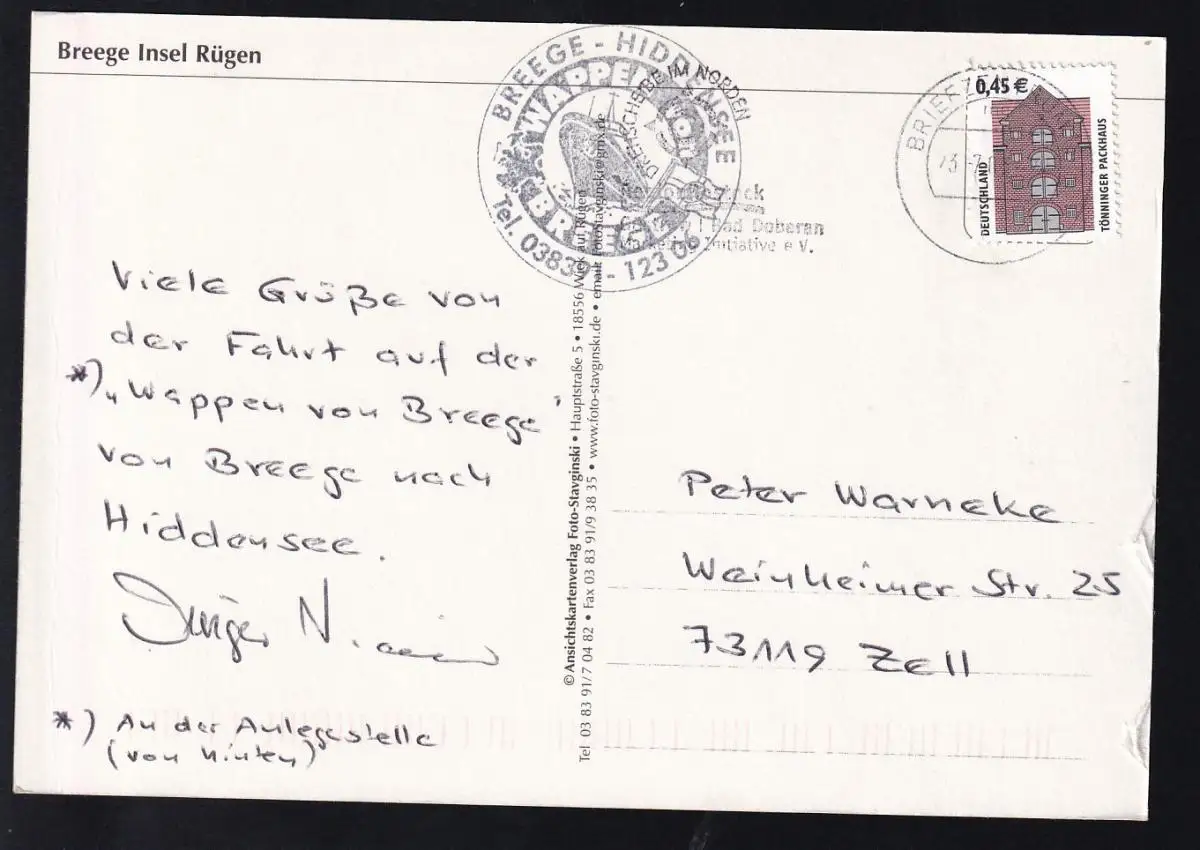 Breege Insel Rügen
BREEGE - HIDDENSEE
WAPPEN VON
BREEGE
Tel. 03839 - 123 06
DREHSCHEIBE IM NORDEN
Bad Doberan
Initiative e V.
BRIEF
0,45 €
DEUTSCHLAND
TÖNNINGER PACKHAUS
Viele Grüße von
der Fahrt auf der
*) „Wappen von Breege"
von Breege nach
Hiddensee.
Jürgen
*) An der Anlegestelle
(von hinten)
© Ansichtskartenverlag Foto-Stavginski • Hauptstraße 5 • 18556 Wiek auf Rügen
Tel 03 83 91/7 04 82 • Fax 03 83 91/9 38 35 • www.foto-stavginski.de • email: FotoStavginski@gmx.de
Peter Warneke
Weinheimer Str. 25
73119 Zell